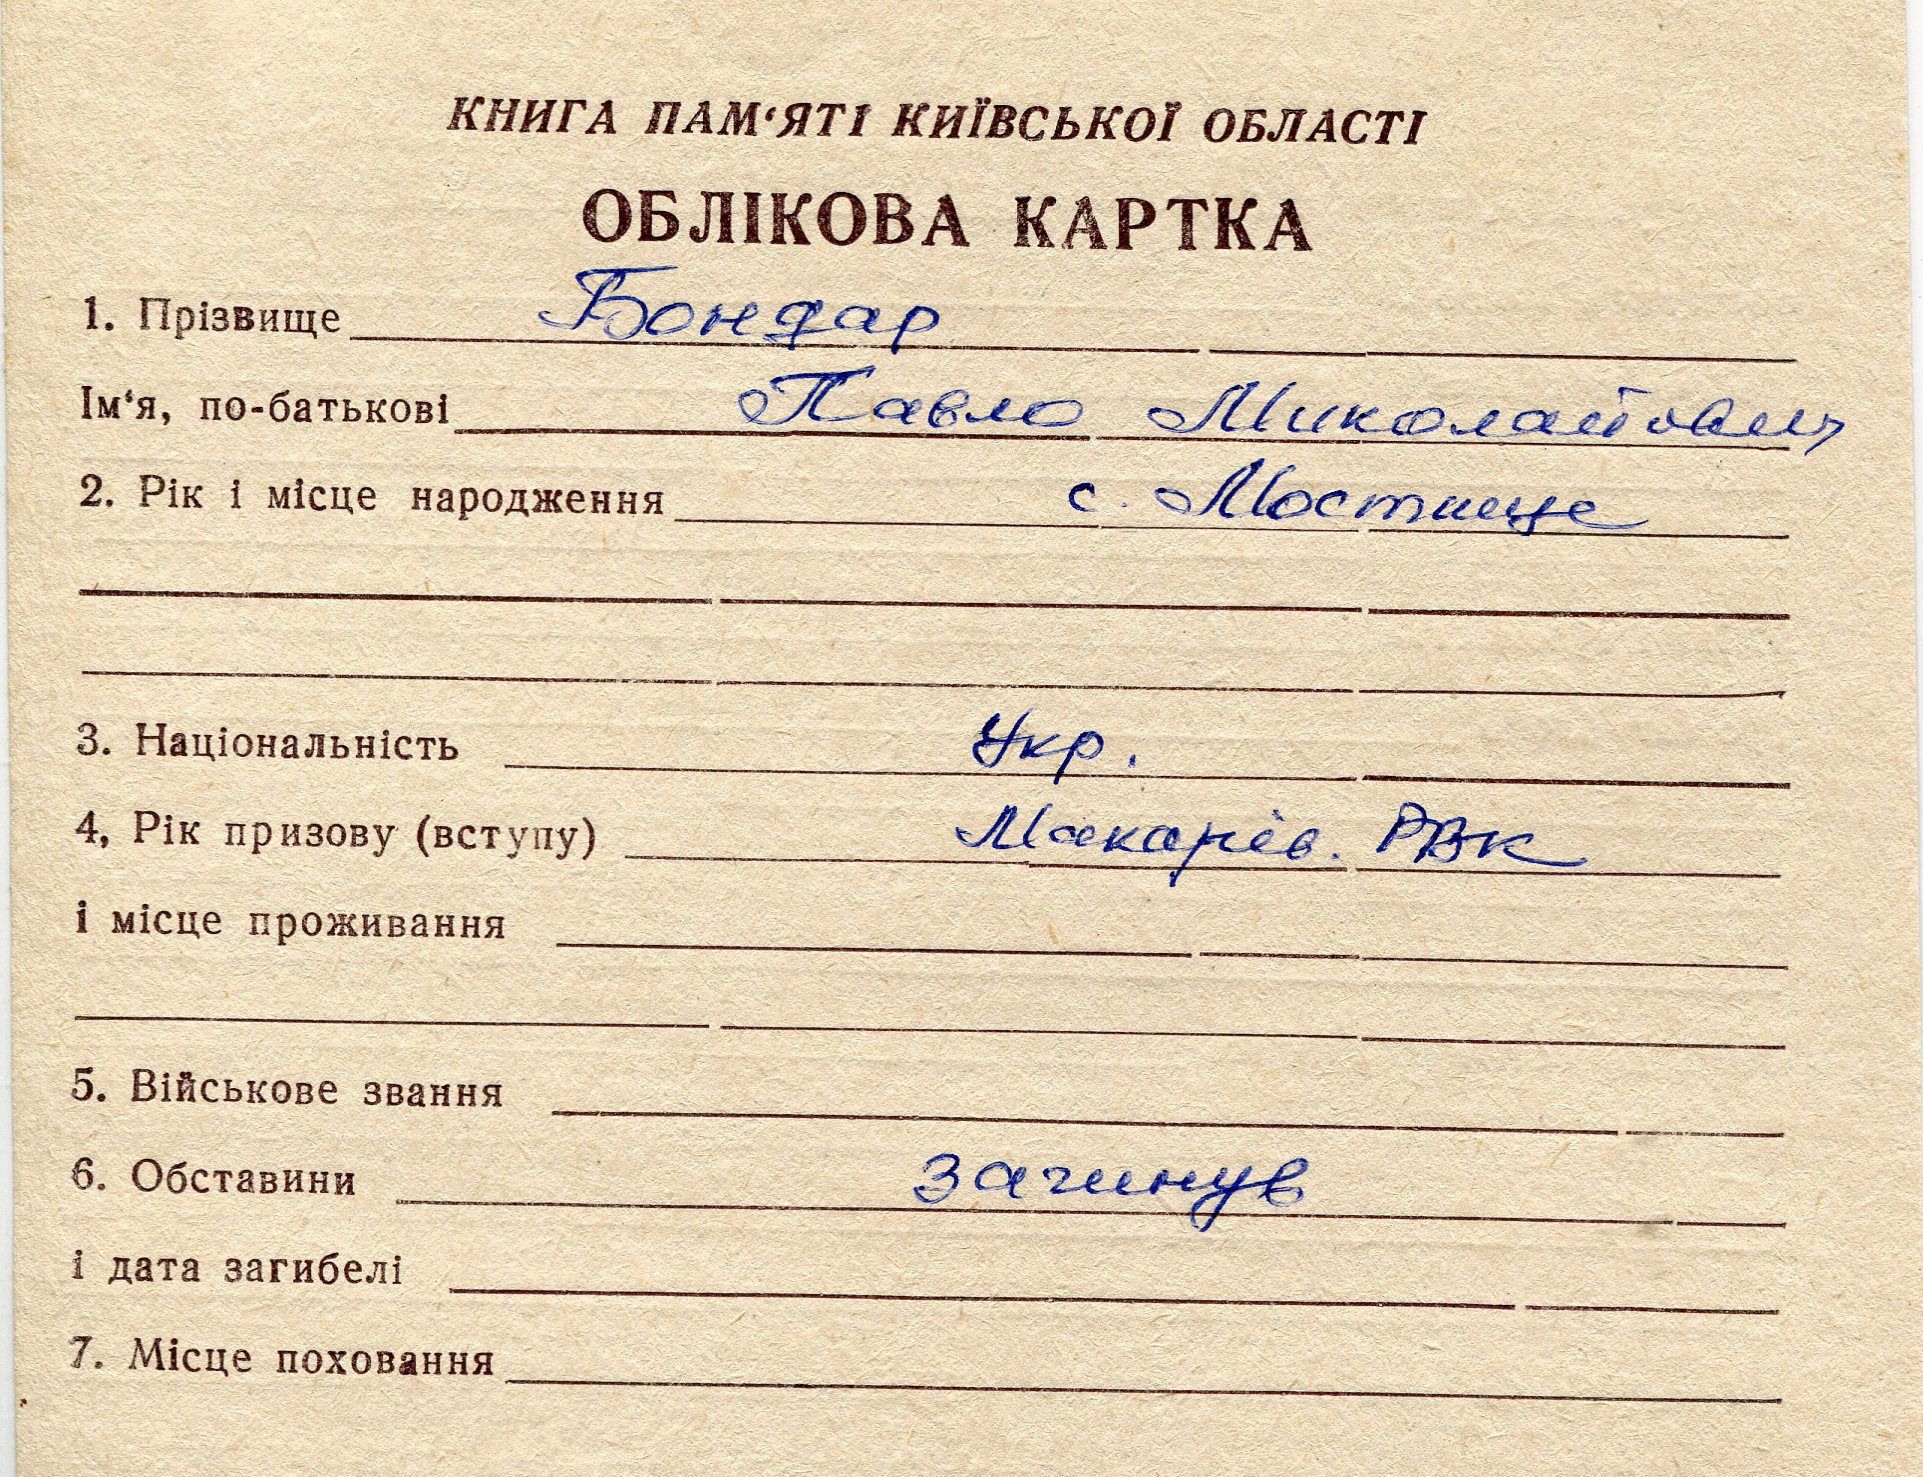 КНИГА ПАМ‘ЯТІ КИЇВСЬКОЇ ОБЛАСТІ
ОБЛІКОВА КАРТКА
1. Прізвище Бондар
Ім‘я, по-батькові Павло Миколайович
2. Рік і місце народження с. Мостище
3. Національність Укр.
4, Рік призову (вступу) Макарів. РВК
і місце проживання
5. Військове звання
6. Обставини загинув
і дата загибелі
7. Місце поховання